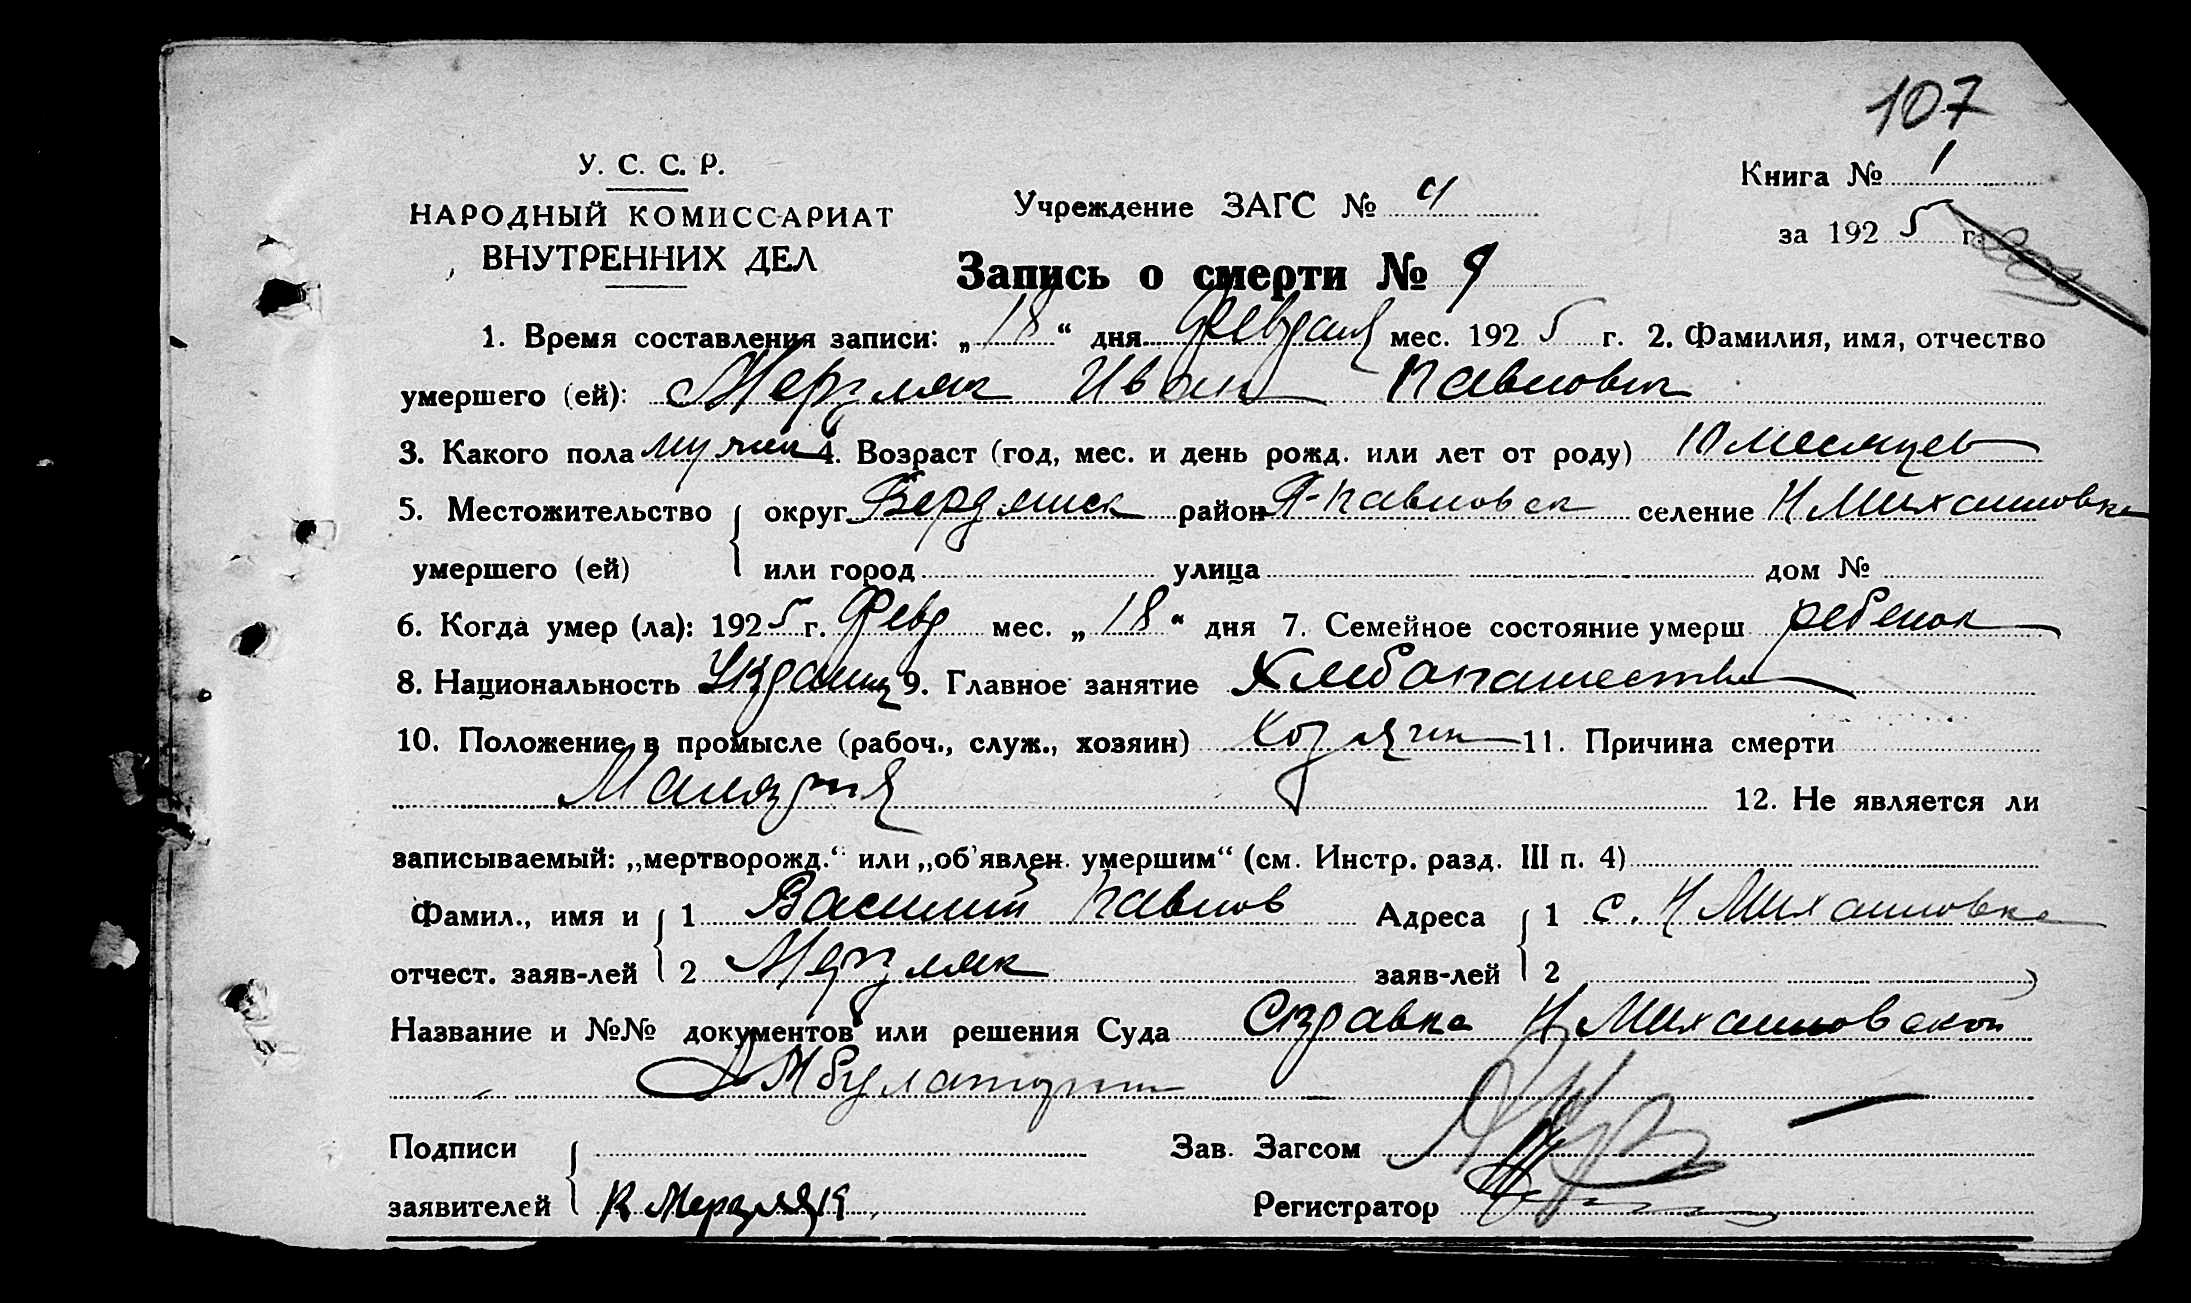 107
У. С. С. Р.
НАРОДНЫЙ КОМИССАРИАТ
ВНУТРЕННИХ ДЕЛ
Учреждение ЗАГС № 4
Книга № 1
за 1925 г.
Запись о смерти № 9
1. Время составления записи: „18“ дня Февраля мес. 1925 г. 2. Фамилия, имя, отчество
умершего (ей): Мерзляк Иван Павлович
3. Какого пола мужчин 4. Возраст (год, мес. и день рожд. или лет от роду) 10 месяцев
5. Местожительство округ Бердянск район П-павловск селение Н Михайловка
умершего (ей) или город улица дом №
6. Когда умер (ла): 1925 г. Февр мес. „18“ дня 7. Семейное состояние умерш ребенок
8. Национальность Украинц 9. Главное занятие Хлебопашество
10. Положение в промысле (рабоч., служ., хозяин) хозяин 11. Причина смерти
Малярия 12. Не является ли
записываемый: „мертворожд.“ или „об'явлен. умершим“ (см. Инстр. разд. III п. 4)
Фамил., имя и 1 Василий Павлов Адреса 1 с. Н Михайловка
отчест. заяв-лей 2 Мерзляк заяв-лей 2
Название и №№ документов или решения Суда Справка Н Михайловской
Амбулатории
Подписи Зав. Загсом
заявителей В Мерзляк Регистратор